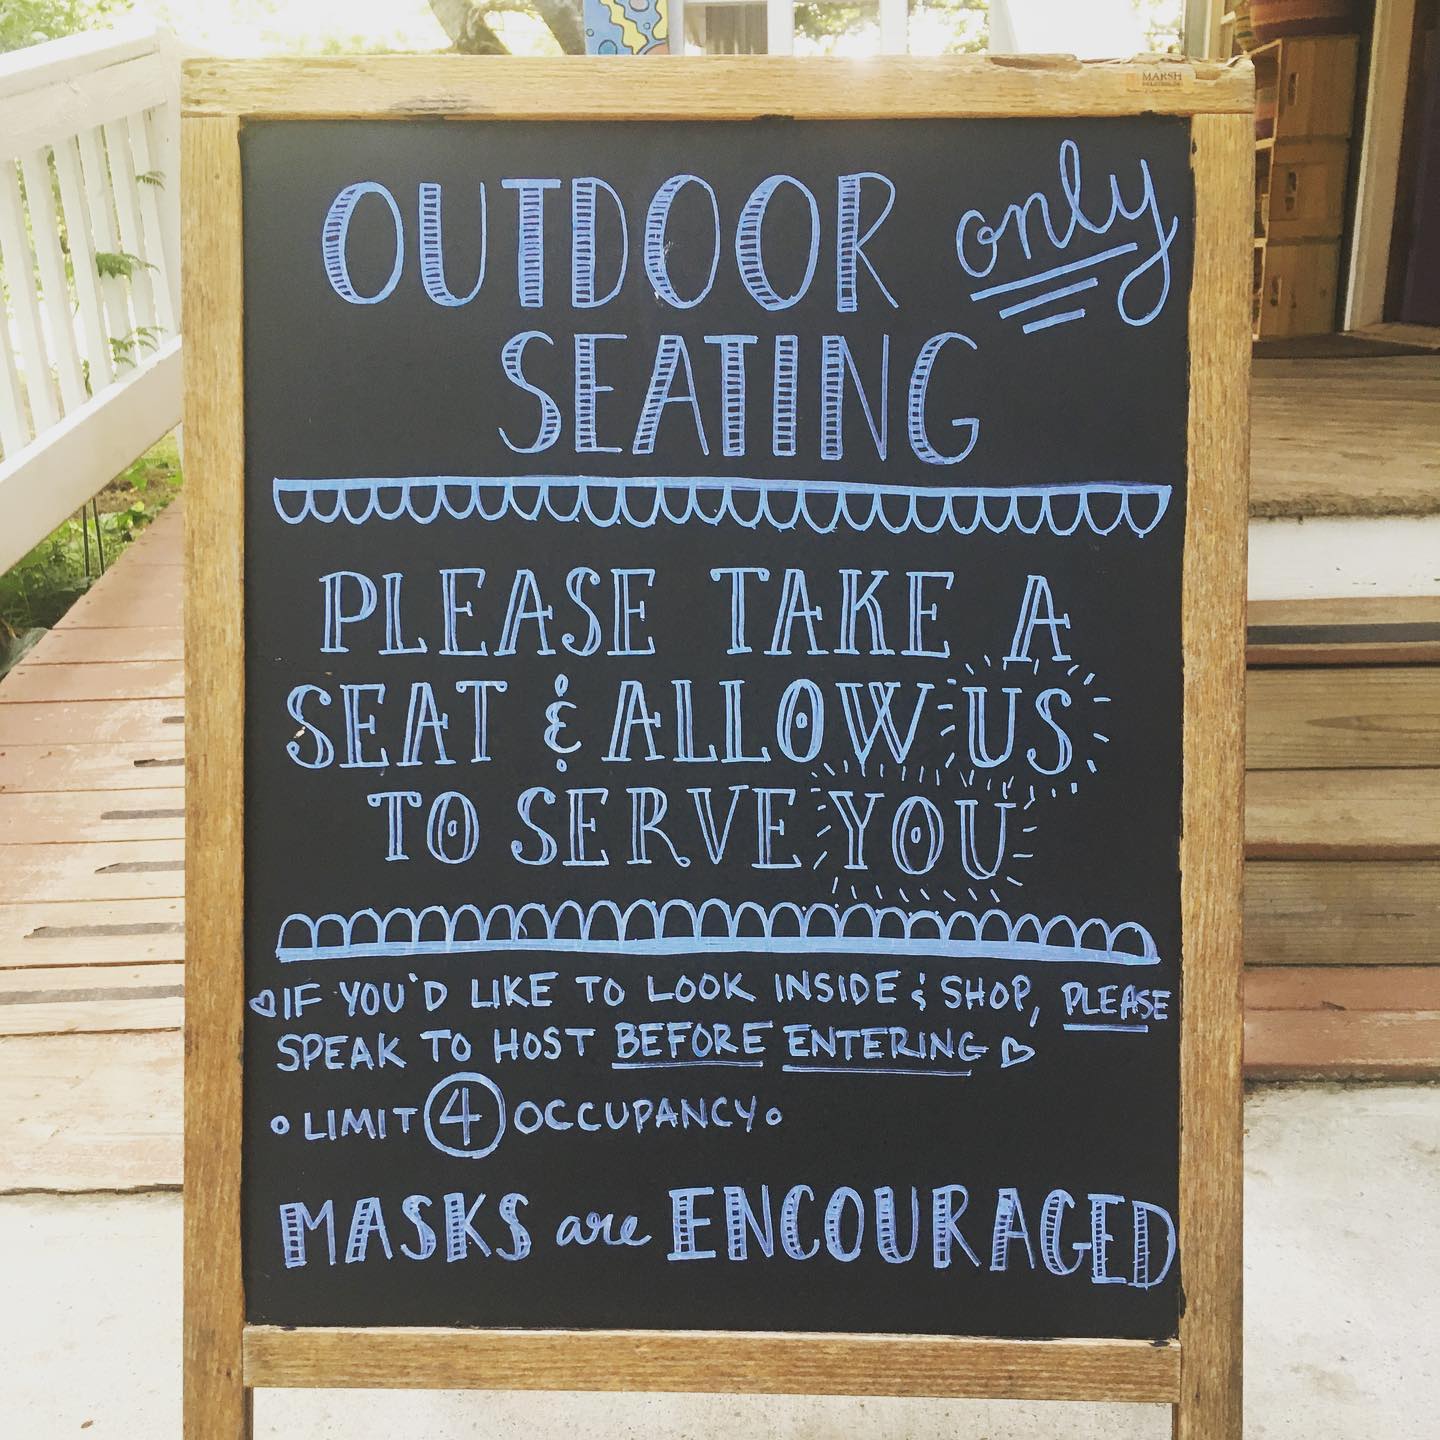 MARSH
OUTDOOR only
SEATING
PLEASE TAKE A
SEAT & ALLOW US
TO SERVE YOU
♡IF YOU'D LIKE TO LOOK INSIDE & SHOP, PLEASE
SPEAK TO HOST BEFORE ENTERING♡
• LIMIT 4 OCCUPANCY •
MASKS are ENCOURAGED